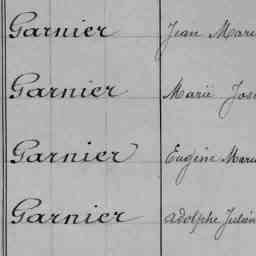 Garnier Jean Marie
Garnier Marie Jose
Garnier Eugène Marie
Garnier Adolphe Julien